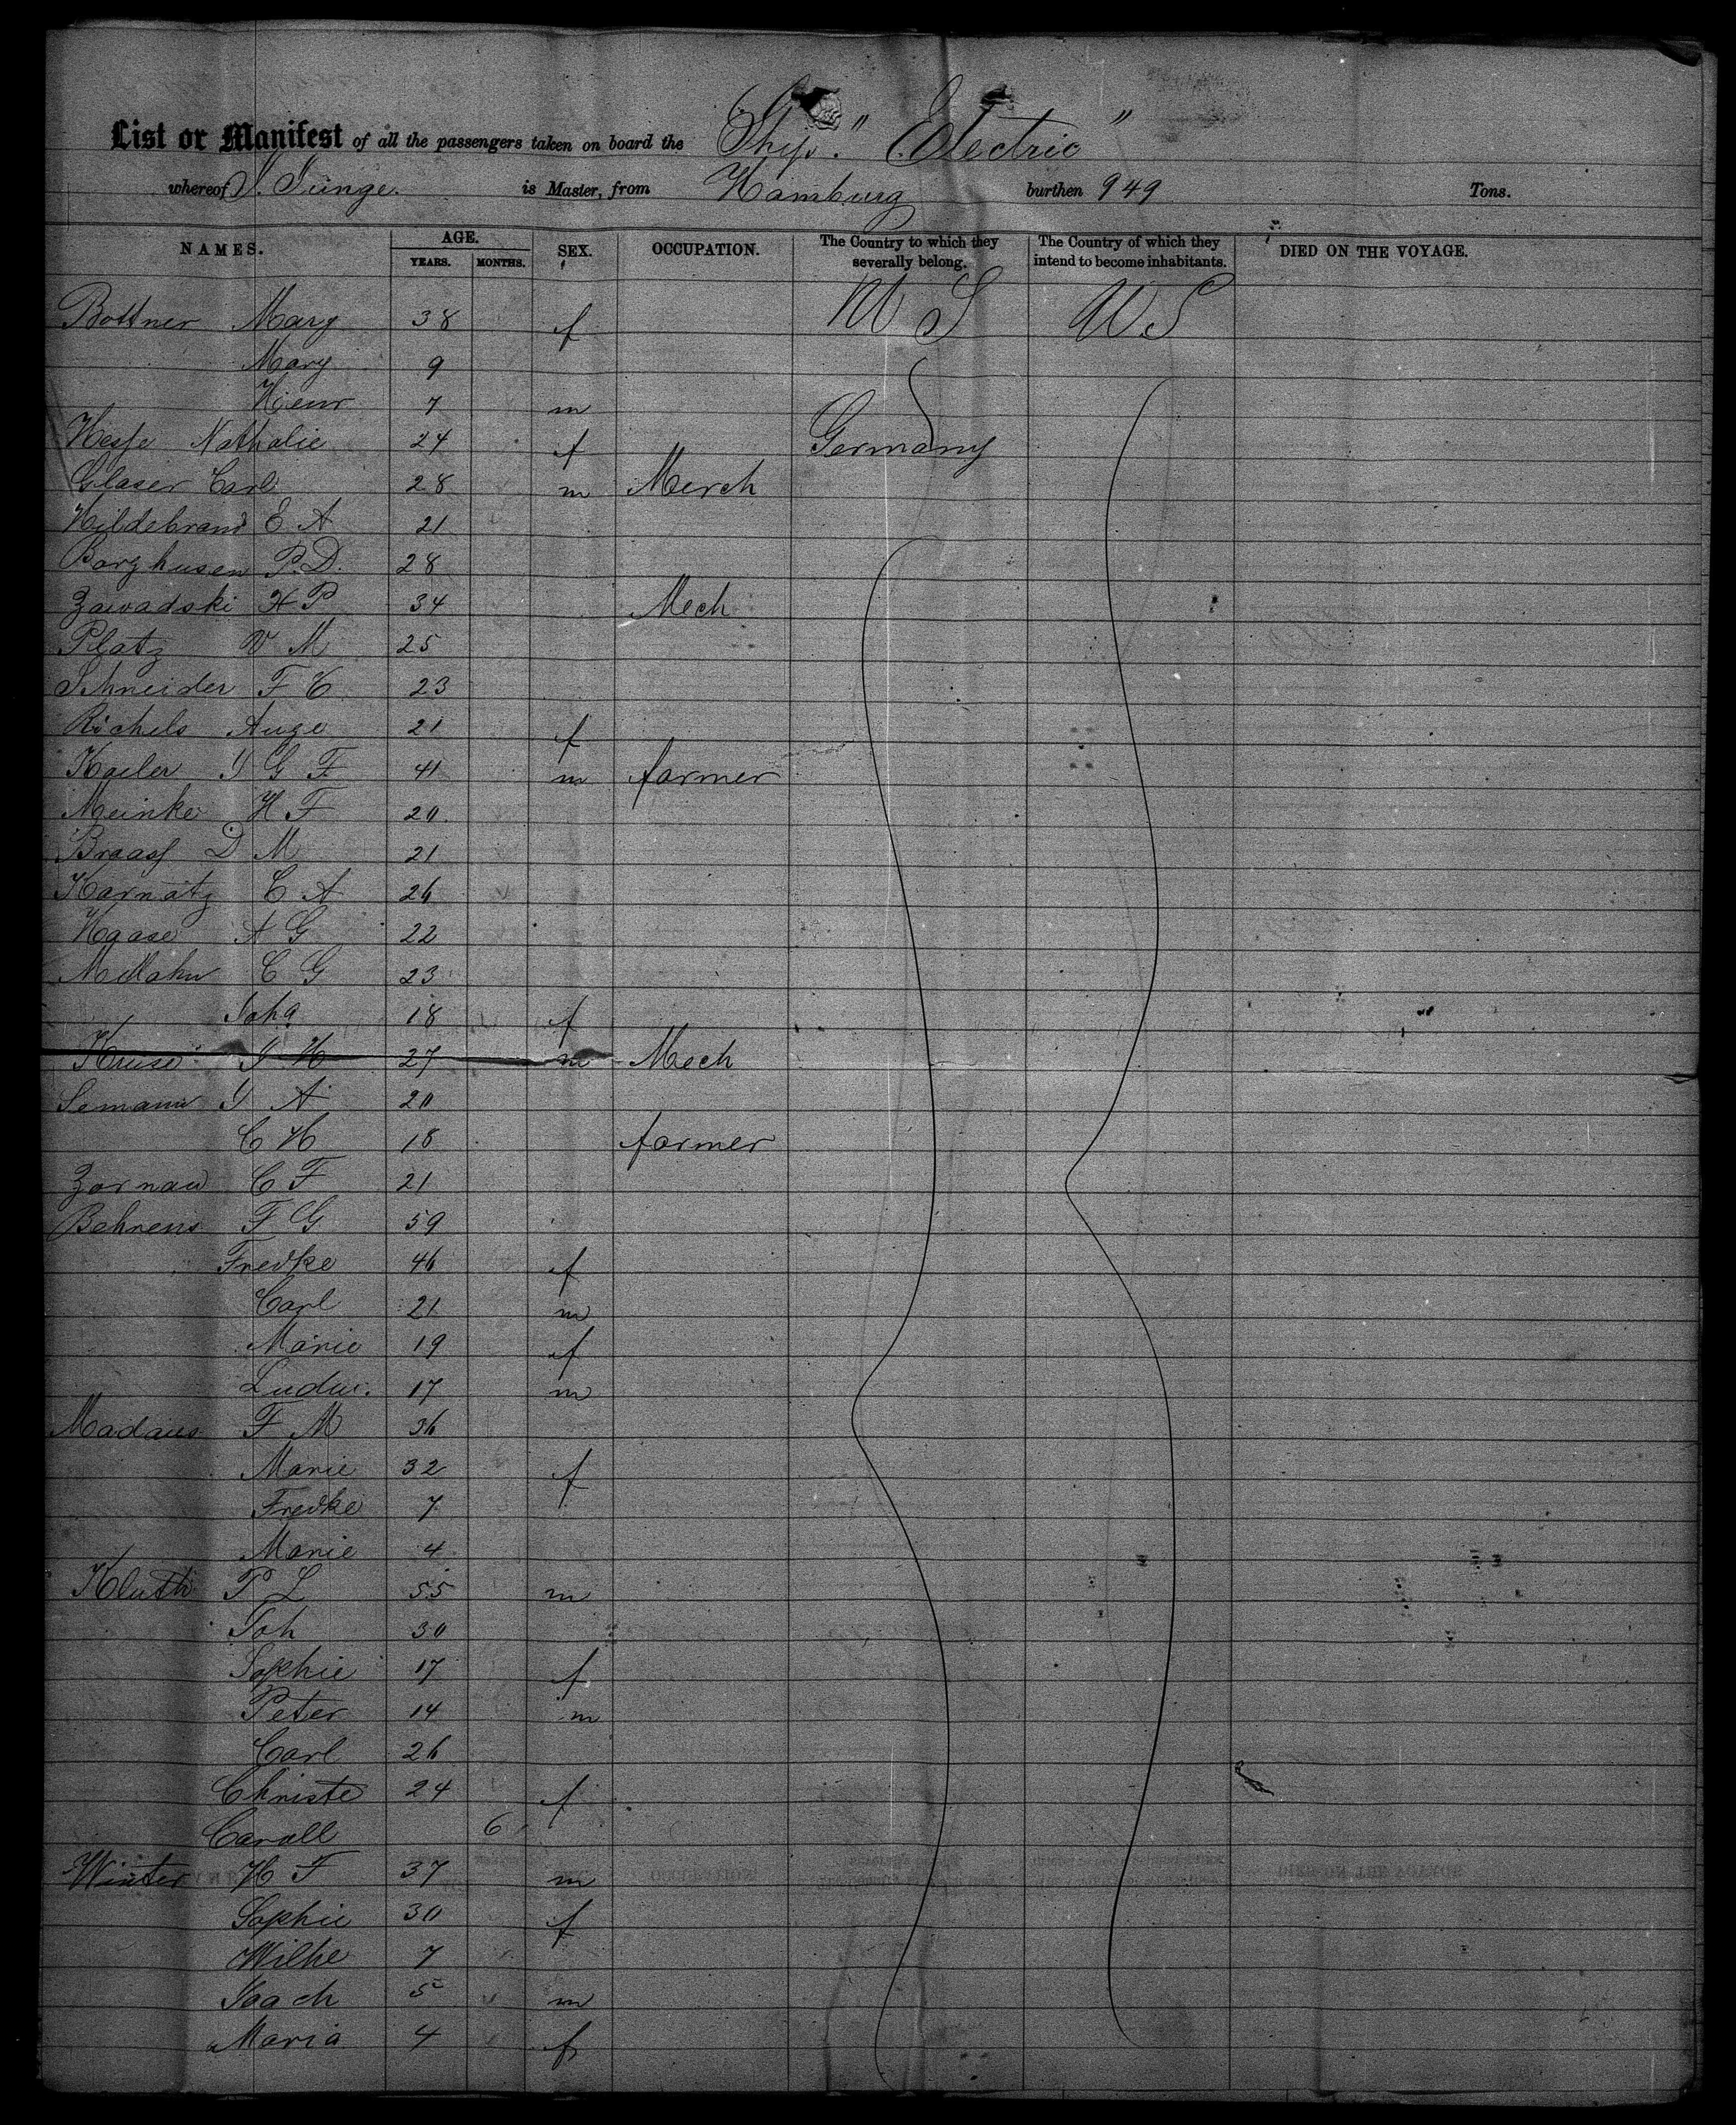 List or Manifest of all the passengers taken on board the Ship "Electric"
whereof J. Junge. is Master, from Hamburg burthen 949 Tons.
NAMES. AGE. YEARS. MONTHS. SEX. OCCUPATION. The Country to which they severally belong. The Country of which they intend to become inhabitants. DIED ON THE VOYAGE.
Bottner Mary 38 f U S U S
Mary 9
Heinr 7 m
Hesse Nathalie 24 f Germany
Glaser Carl 28 m Merch
Hildebrand E A 21
Borghusen P. D. 28
Zawadski H P 34 Mech
Platz V M 25
Schneider F C 23
Richels Auge 21 f
Kaeler J G F 41 m farmer
Meinke H F 20
Braass D M 21
Karnatz C A 26
Haase A G 22
Mellahn C G 23
Joha 18 f
Kruse J H 27 m Mech
Lemann J A 20
C H 18 farmer
Zornau C F 21
Behrens F G 59
Fredke 46 f
Carl 21 m
Marie 19 f
Ludw. 17 m
Madaus F M 36
Marie 32 f
Fredke 7
Marie 4
Kluth P L 55 m
Joh 30
Sophie 17 f
Peter 14 m
Carl 26
Christe 24 f
Caroll 6
Winter H F 37 m
Sophie 30 f
Wilhe 7
Joach 5 m
Maria 4 f